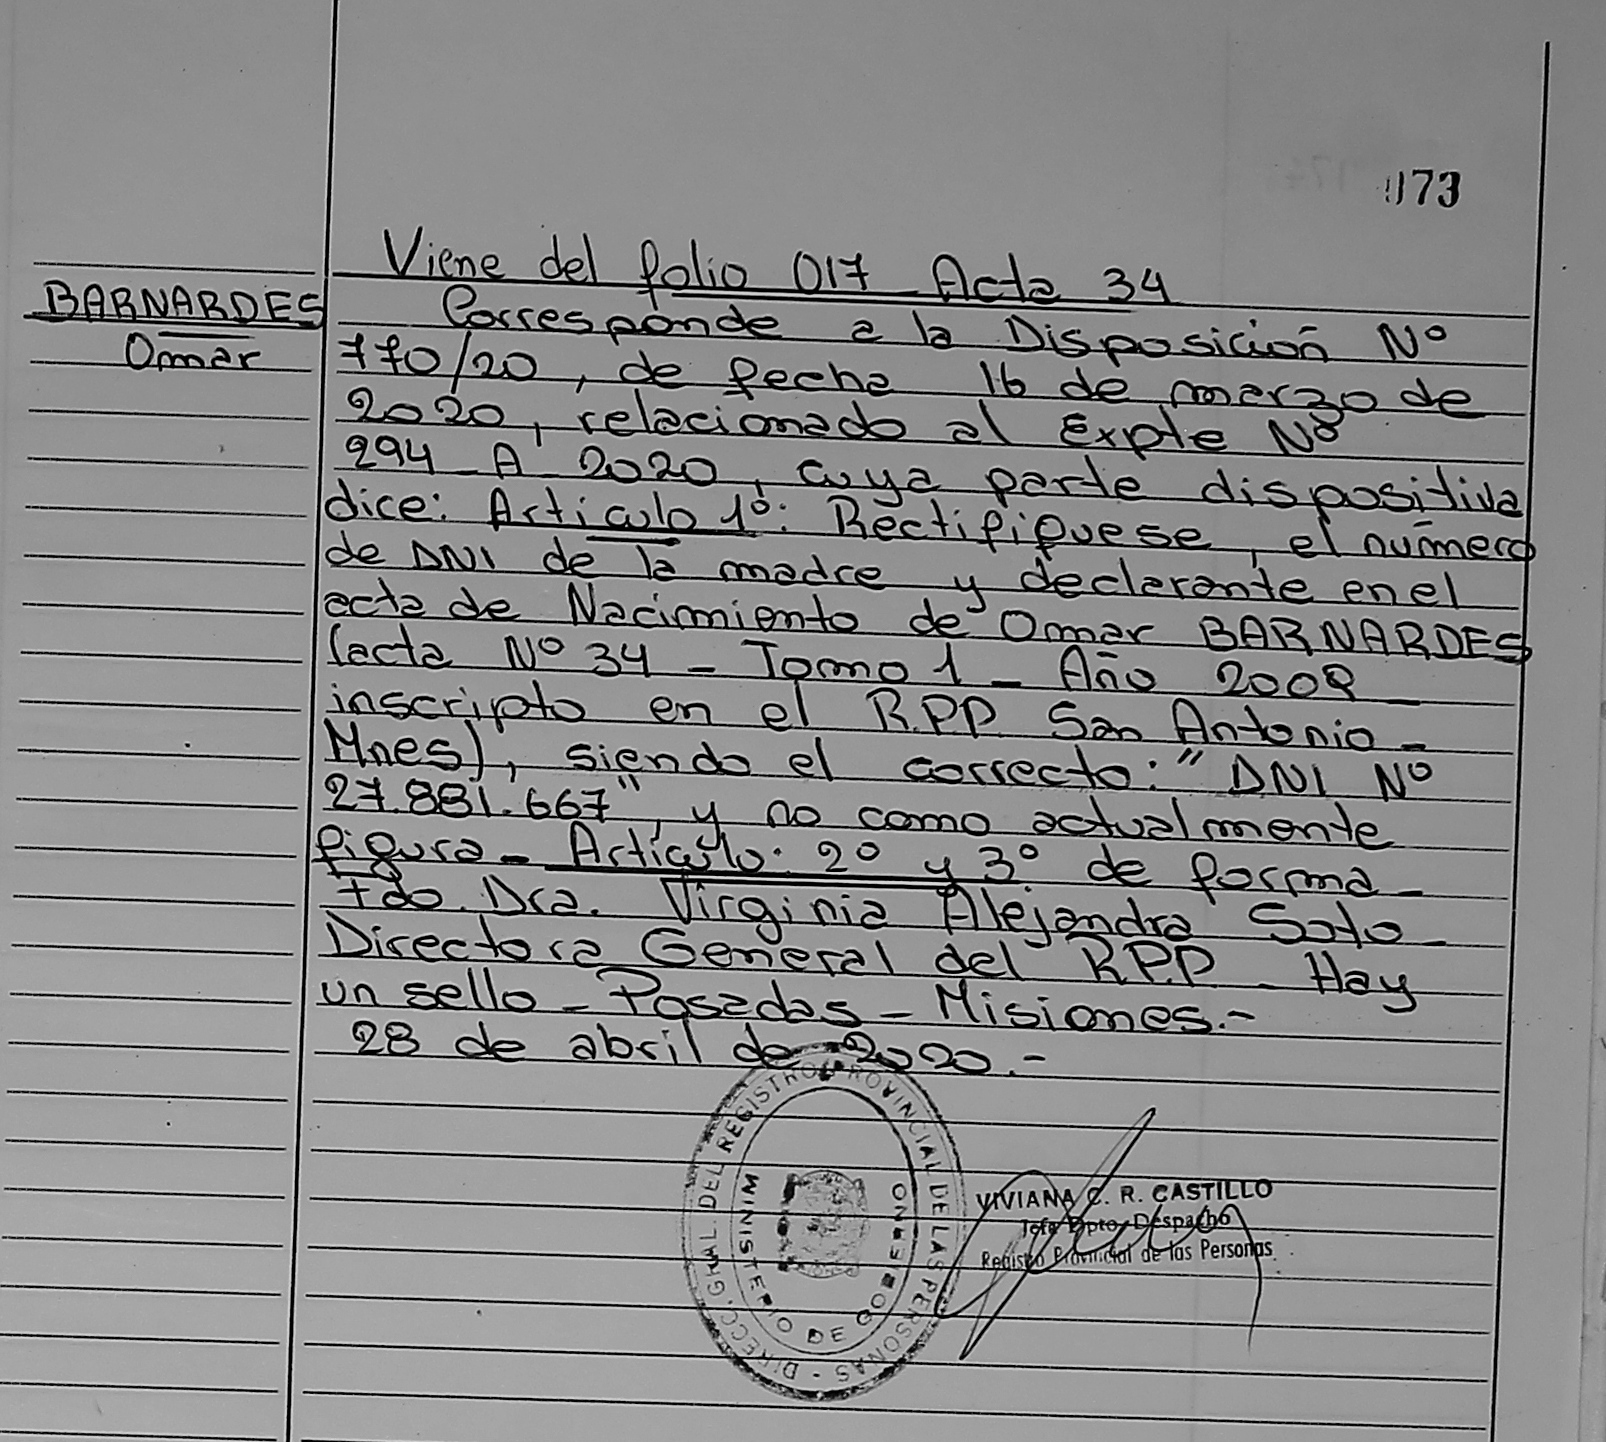 073
Viene del folio 017 Acta 34
BARNARDES
Omar
Corresponde a la Disposición Nº
770/20, de fecha 16 de marzo de
2020, relacionado al Expte Nº
294 A 2020, cuya parte dispositiva
dice: Artículo 1º: Rectifíquese, el número
de DNI de la madre y declarante en el
acta de Nacimiento de Omar BARNARDES
(acta Nº 34 - Tomo 1 - Año 2008
inscripto en el R.P.P. San Antonio -
Mnes), siendo el correcto: "DNI Nº
27.881.667", y no como actualmente
figura - Artículo: 2º y 3º de forma -
Fdo. Dra. Virginia Alejandra Soto -
Directora General del R.P.P - Hay
un sello - Posadas - Misiones.-
28 de abril de 2020.-
DIRECC. GRAL. DEL REGISTRO PROVINCIAL DE LAS PERSONAS
MINISTERIO DE GOBIERNO
VIVIANA C. R. CASTILLO
Jefe Dpto. Despacho
Registro Provincial de las Personas